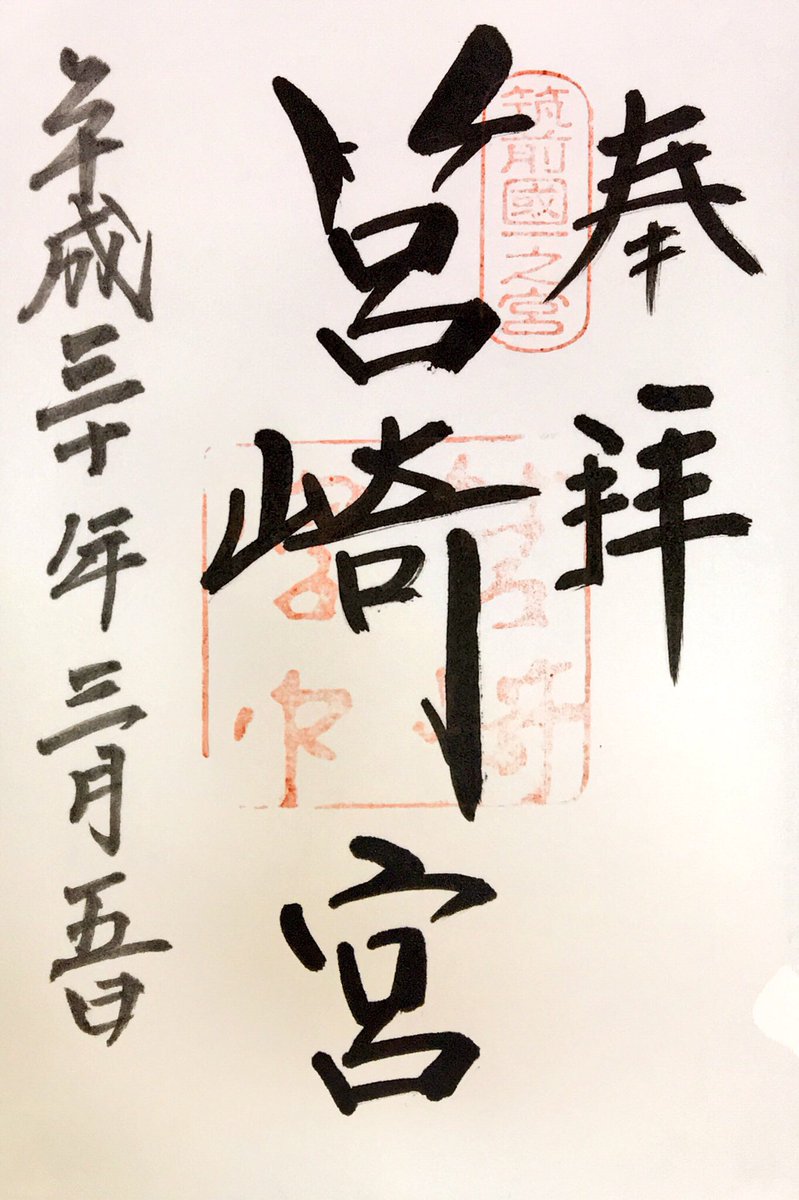 奉拝
筑前國一之宮
筥崎宮
筥崎
宮印
平成三十年三月五日